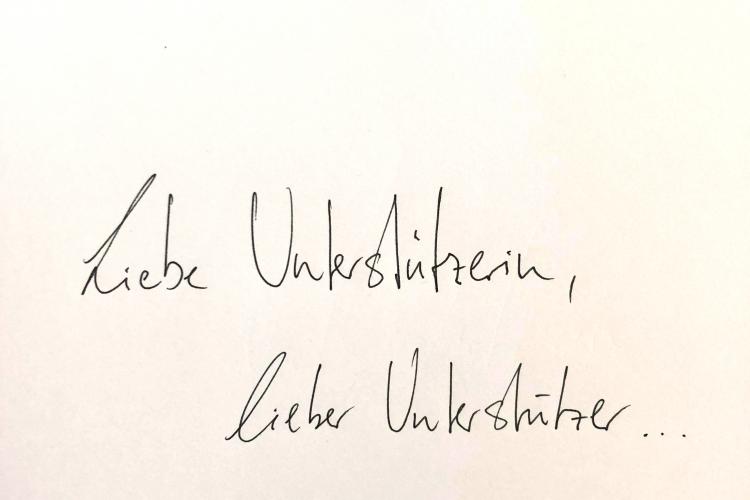 Liebe Unterstützerin,
lieber Unterstützer...